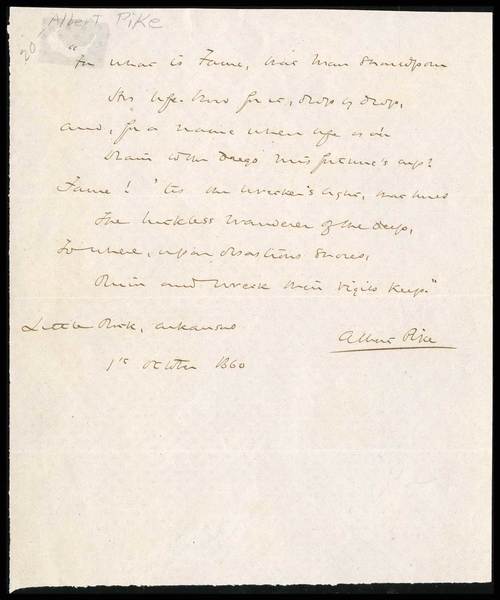 Albert Pike
20
"For what is Fame, that Man should pour
His life-blood for it, drop by drop,
and, for a name when life is o'er
Drain to the dregs misfortune's cup?
Fame! 'tis the wrecker's light, that lures
The luckless Wanderer of the deep,
To where, upon disastrous shores,
Ruin and Wreck their vigils keep."
Little Rock, Arkansas
1st October 1860
Albert Pike